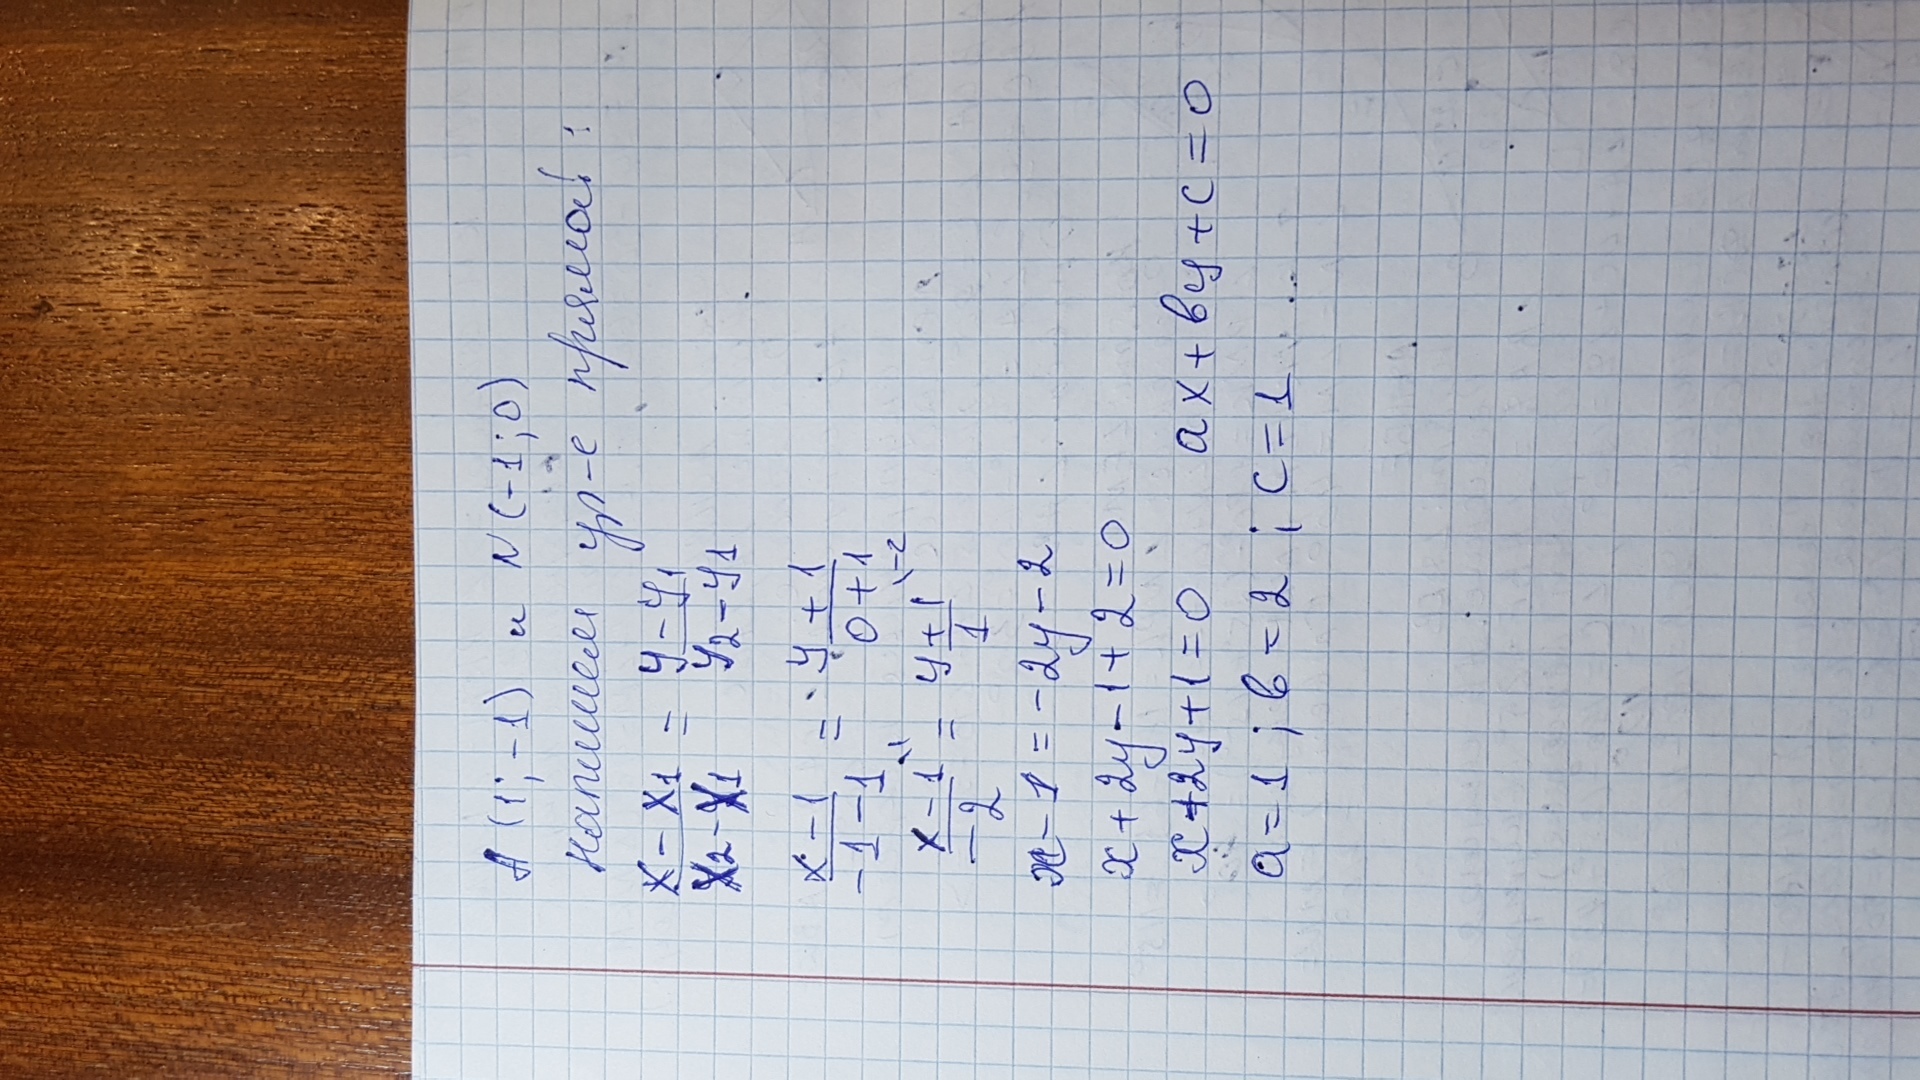 A (1; -1) и N (-1; 0)
Напишем ур-е прямой:
x - x1 / x2 - x1 = y - y1 / y2 - y1
x - 1 / -1 - 1 = y + 1 / 0 + 1
x - 1 \1 / -2 = y + 1 \-2 / 1
x - 1 = -2y - 2
x + 2y - 1 + 2 = 0
x + 2y + 1 = 0 ax + by + c = 0
a = 1; b = 2; c = 1